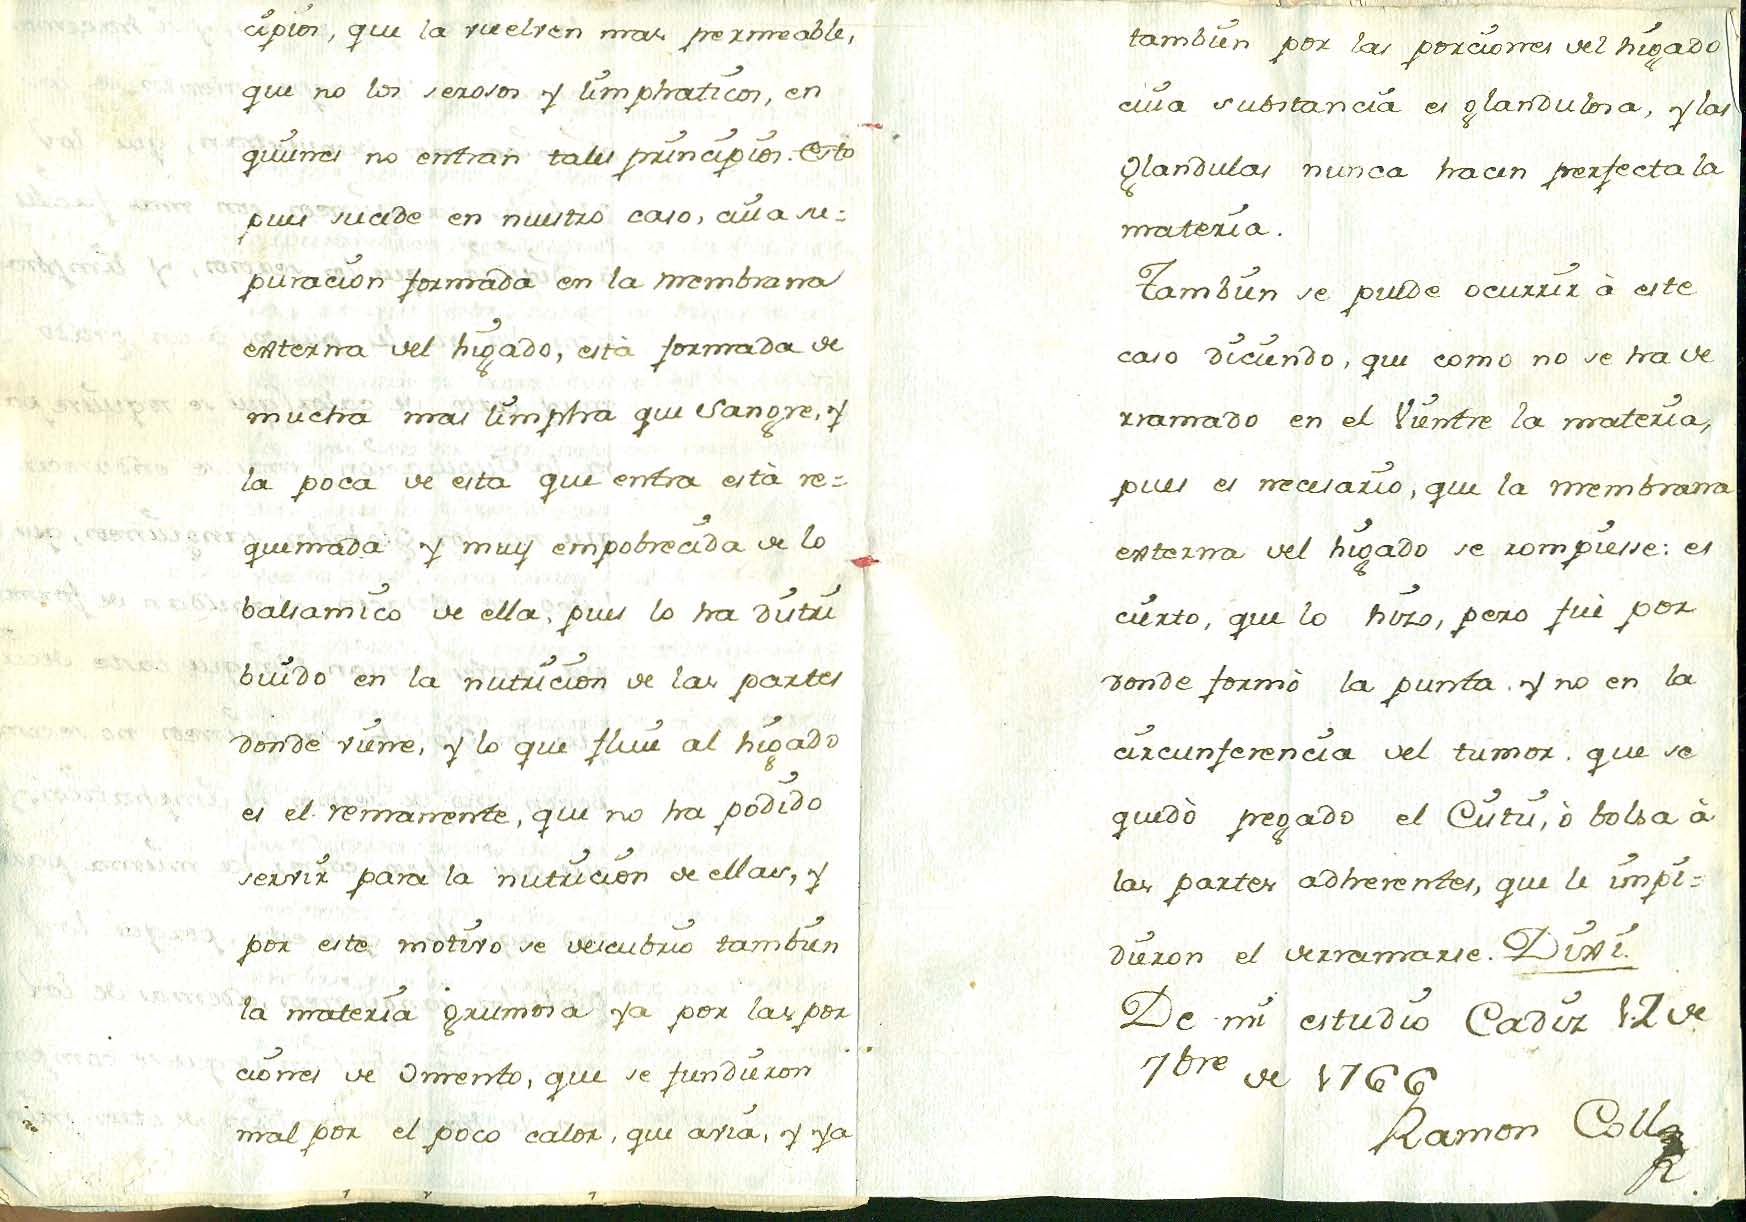 cipios, que la vuelven mas permeable,
que no los serosos y limphaticos, en
quienes no entran tales principios. Esto
pues sucede en nuestro caso, cuia su=
puracion formada en la membrana
externa del higado, està formada de
mucha mas limpha que Sangre, y
la poca de esta que entra està re=
quemada y muy empobrecida de lo
balsamico de ella, pues lo ha distri
buido en la nutricion de las partes
donde viene, y lo que fluie al higado
es el remanente, que no ha podido
servir para la nutricion de ellas, y
por este motivo se descubrio tambien
la materia grumosa ya por las por
ciones de Omento, que se fundieron
mal por el poco calor, que avia, y ya
tambien por las porciones del higado
cuia substancia es glandulosa, y las
Glandulas nunca hacen perfecta la
materia.
Tambien se puede ocurrir à este
caso diciendo, que como no se ha de
rramado en el Vientre la materia,
pues es necesario, que la membrana
externa del higado se rompiesse: es
cierto, que lo hizo, pero fuè por
donde formò la punta y no en la
circunferencia del tumor. que se
quedò pegado el Cutis, ò bolsa à
las partes adherentes, que le impi=
dieron el derramarse. Dixi.
De mi estudio Cadiz 12 de
7bre de 1766
Ramon Coll